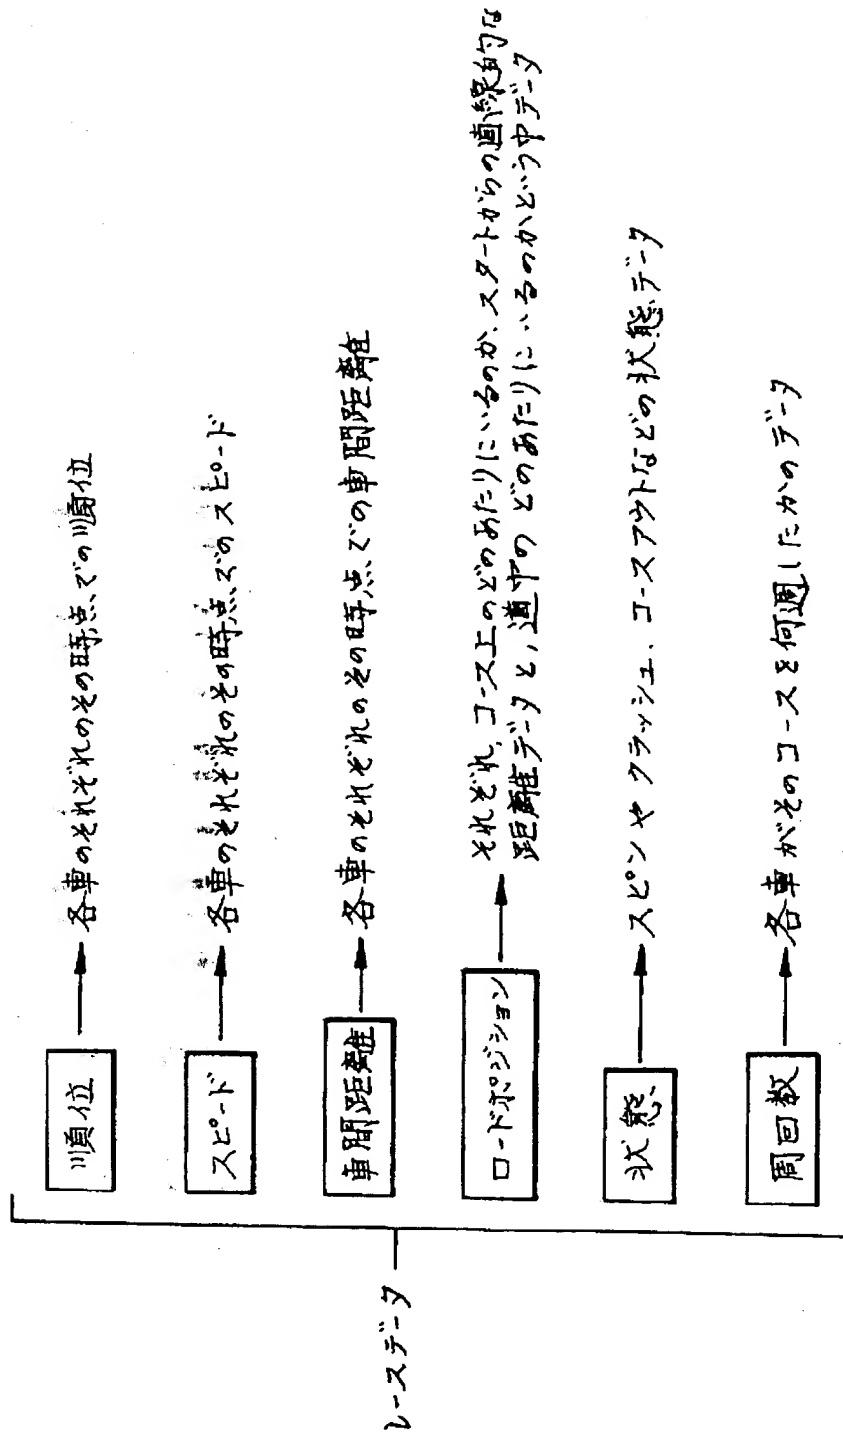 レースデータ
順位
各車のそれぞれのその時点での順位
スピード
各車のそれぞれのその時点でのスピード
車間距離
各車のそれぞれのその時点での車間距離
ロードポジション
それぞれ、コース上のどのあたりにいるのか、スタートからの直線的な
距離データと、道巾のどのあたりにいるのかという巾データ
状態
スピンやクラッシュ、コースアウトなどの状態データ
周回数
各車がそのコースを何週したかのデータ